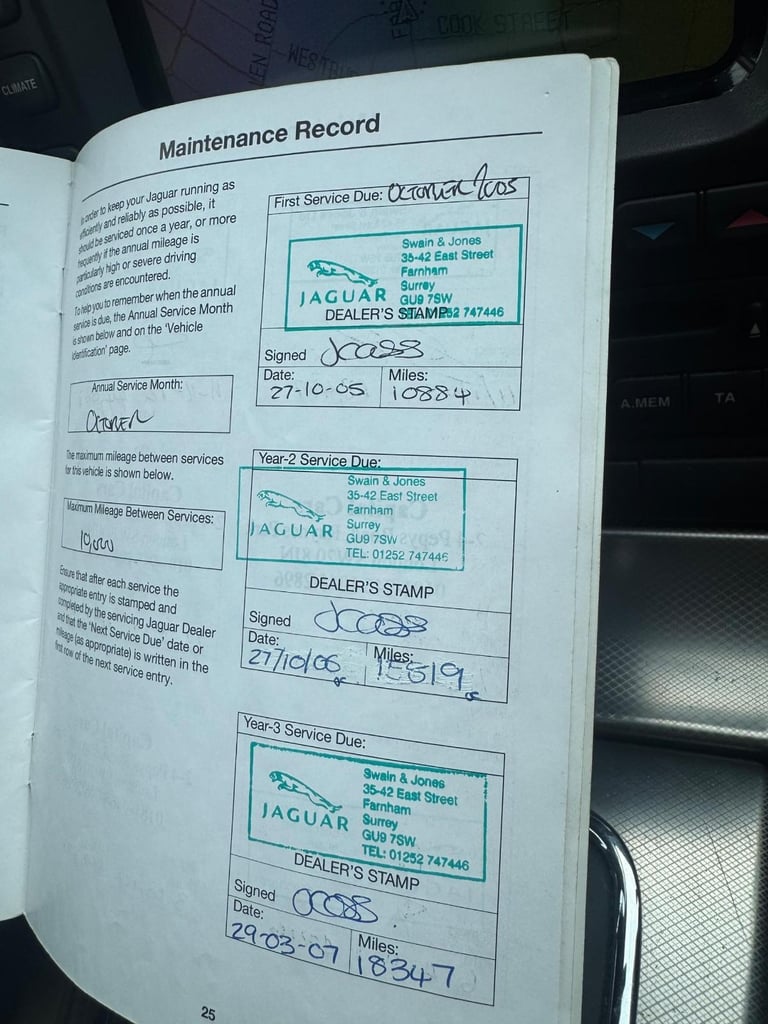 COOK STREET
CLIMATE
Maintenance Record
In order to keep your Jaguar running as
efficiently and reliably as possible, it
should be serviced once a year, or more
frequently if the annual mileage is
particularly high or severe driving
conditions are encountered.
To help you to remember when the annual
service is due, the Annual Service Month
is shown below and on the 'Vehicle
Identification' page.
Annual Service Month:
OCTOBER
The maximum mileage between services
for this vehicle is shown below.
Maximum Mileage Between Services:
10,000
Ensure that after each service the
appropriate entry is stamped and
completed by the servicing Jaguar Dealer
and that the 'Next Service Due' date or
mileage (as appropriate) is written in the
first row of the next service entry.
First Service Due: OCTOBER 2005
JAGUAR
Swain & Jones
35-42 East Street
Farnham
Surrey
GU9 7SW
TEL: 01252 747446
DEALER'S STAMP
Signed
Date:
27-10-05
Miles:
10884
Year-2 Service Due:
JAGUAR
Swain & Jones
35-42 East Street
Farnham
Surrey
GU9 7SW
TEL: 01252 747446
DEALER'S STAMP
Signed
Date:
27/10/06
Miles:
15519
Year-3 Service Due:
JAGUAR
Swain & Jones
35-42 East Street
Farnham
Surrey
GU9 7SW
TEL: 01252 747446
DEALER'S STAMP
Signed
Date:
29-03-07
Miles:
18347
25
A.MEM
TA